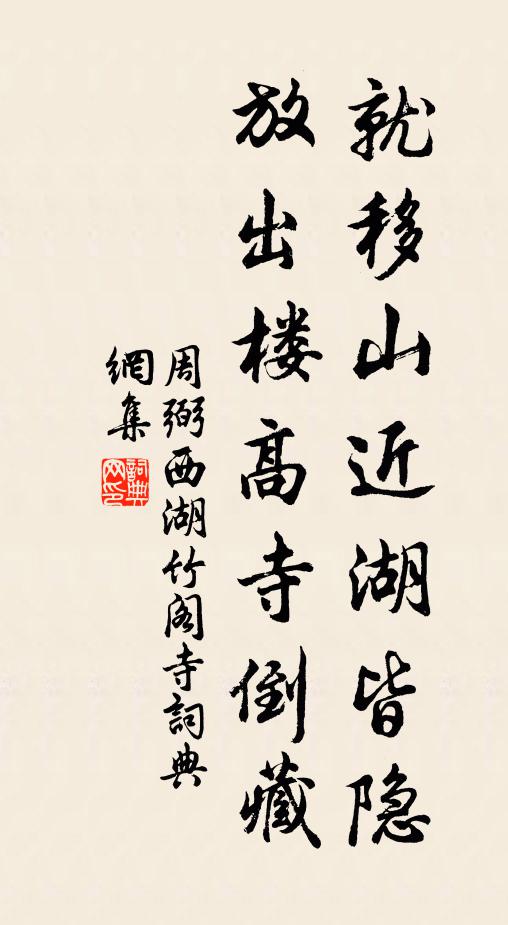 就移山近湖皆隐
放出楼高寺倒藏
周弼西湖竹阁寺詞典
網集
詞典
网印